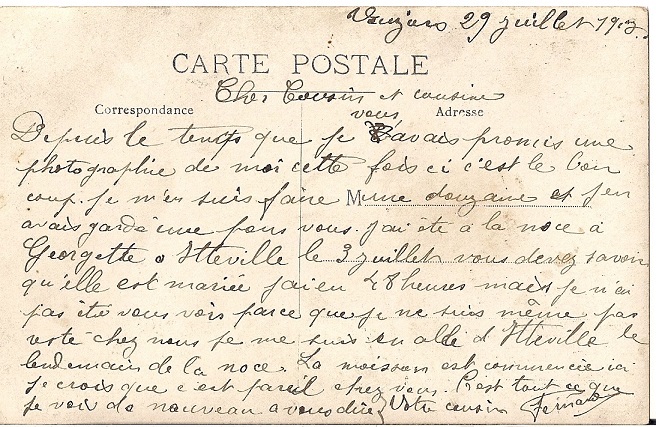 29 juillet 1913
CARTE POSTALE
Cher Cousin et cousine
Correspondance
Adresse
vous
Depuis le temps que je avais promis une
photographie de moi cette fois ci c'est le bon
coup. je m'en suis faire M une douzaine et j'en
avais gardé une pour vous. j'ai été à la noce à
Georgette a Itteville le 3 juillet vous devez savoir
qu'elle est mariée j'ai eu 48 heures mais je n'ai
pas été vous voir parce que je ne suis même pas
resté chez nous je me suis en allé d'Itteville le
lendemain de la noce. La moisson est commencée ici
je crois que c'est pareil chez vous. C'est tout ce que
je vois de nouveau a vous dire Votre cousin Fernand